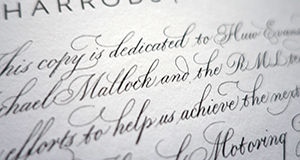 HARRODS
This copy is dedicated to Huw Evans
chael Mallock and the RML te
efforts to help us achieve the next
Motoring